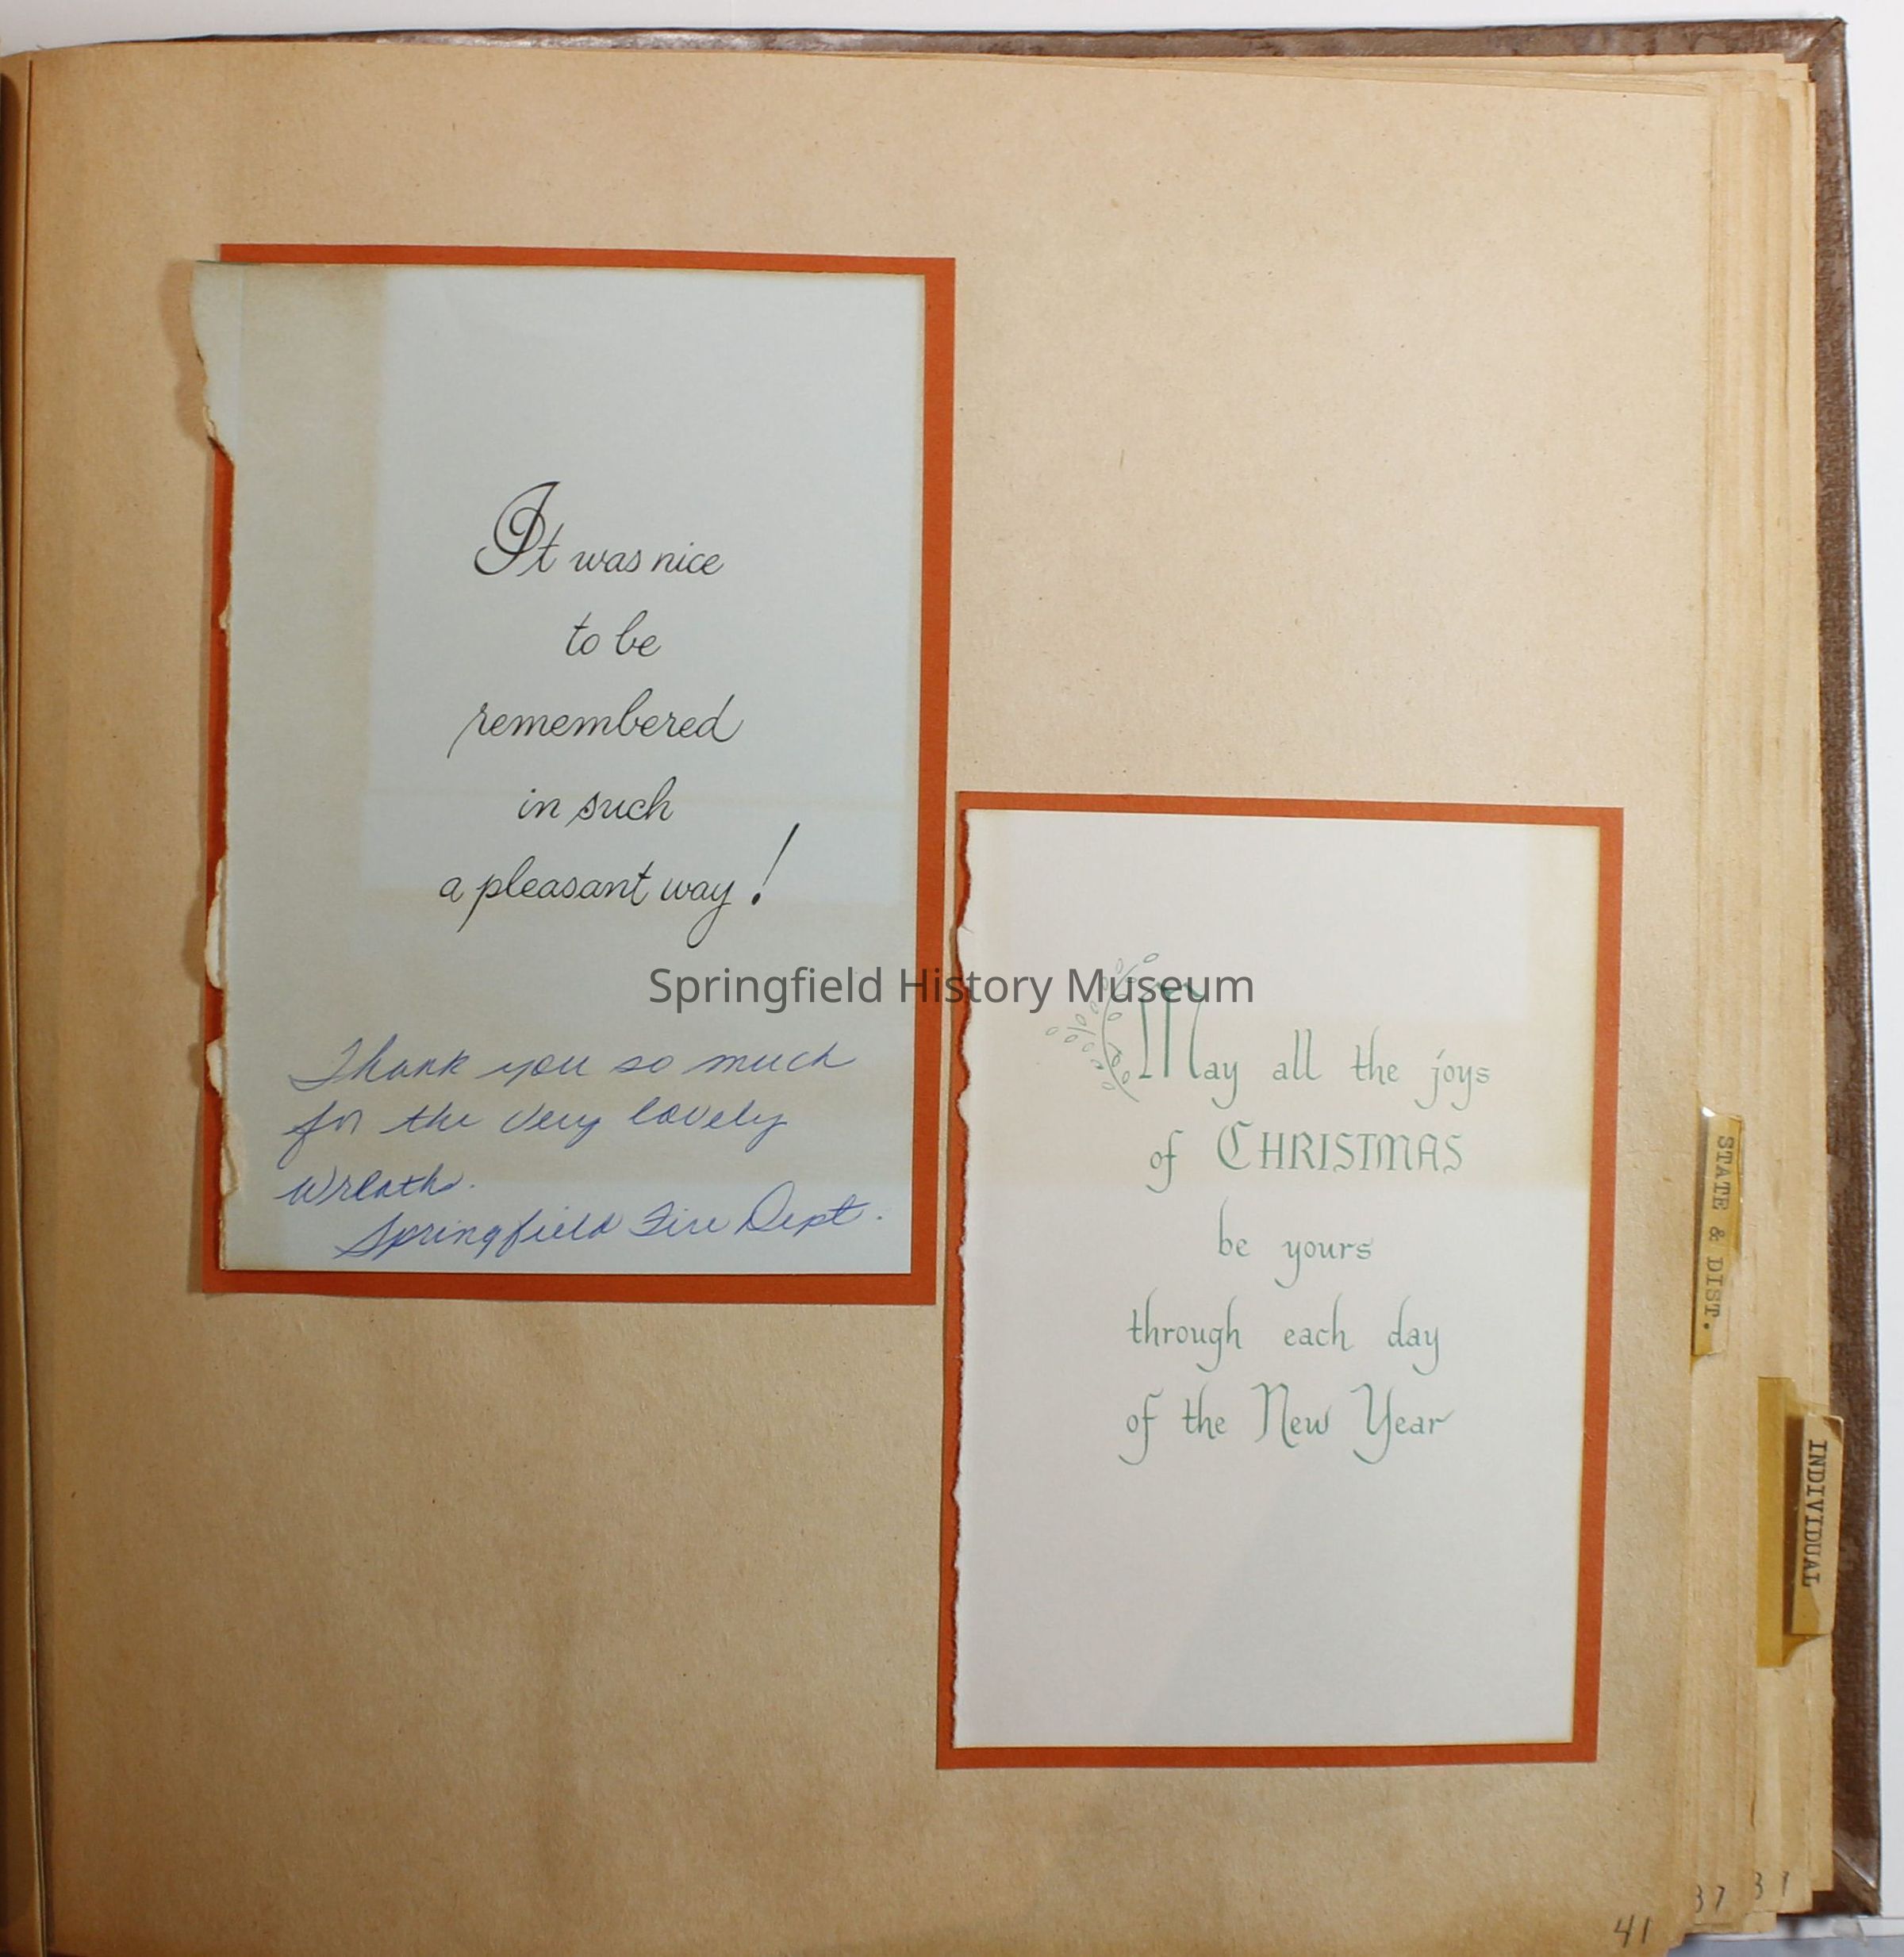 It was nice
to be
remembered
in such
a pleasant way!
Thank you so much
for the very lovely
wreath.
Springfield Fire Dept.
Springfield History Museum
May all the joys
of CHRISTMAS
be yours
through each day
of the New Year
STATE & DIST.
INDIVIDUAL
41
37